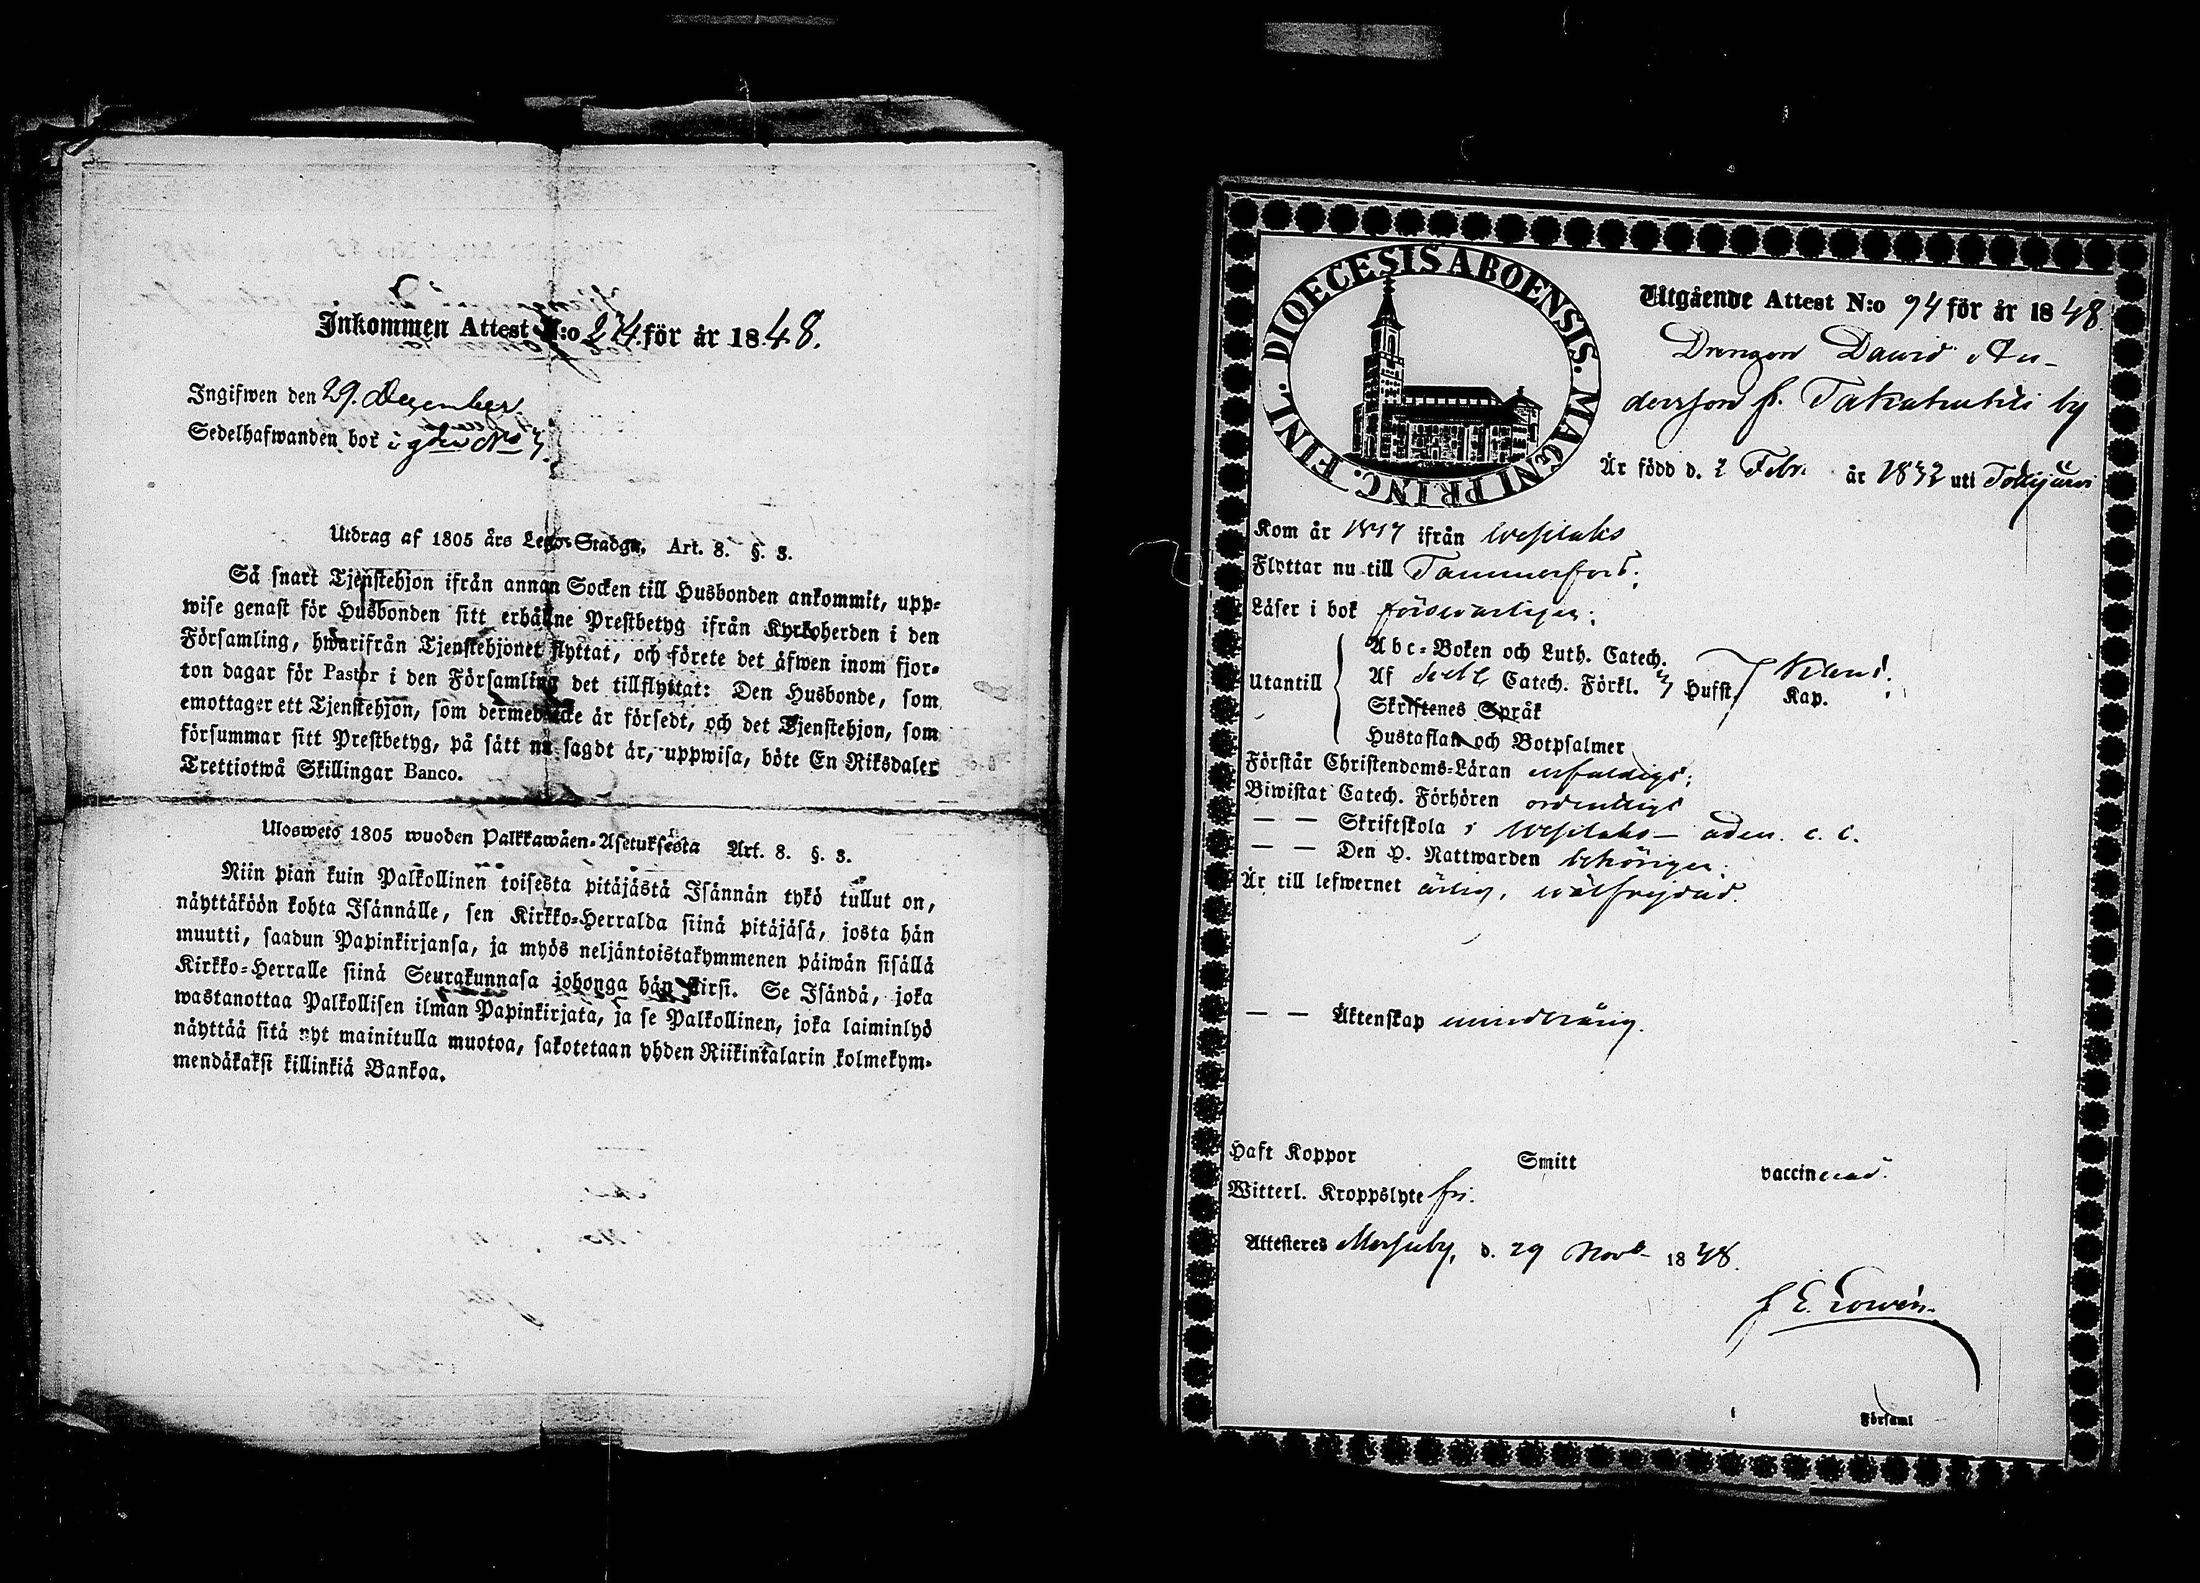 Inkommen Attest N:o 274. för år 1848.
Ingifwen den 29. December.
Sedelhafwanden bor i gden No 7.
Utdrag af 1805 års Lego-Stadga, Art. 8. §. 3.
Så snart Tjenstehjon ifrån annan Socken till Husbonden ankommit, upp-
wise genast för Husbonden sitt erhållne Prestbetyg ifrån Kyrkoherden i den
Församling, hwarifrån Tjenstehjonet flyttat, och förete det äfwen inom fjor-
ton dagar för Pastor i den Församling det tillflyttat: Den Husbonde, som
emottager ett Tjenstehjon, som dermed icke är försedt, och det Tjenstehjon, som
försummar sitt Prestbetyg, på sätt nu sagdt är, uppwisa, böte En Riksdaler
Trettiotwå Skillingar Banco.
Ulosweto 1805 wuoden Palkkawäen-Asetuksesta Art. 8. §. 3.
Niin pian kuin Palkollinen toisesta pitäjästä Isännän tykö tullut on,
näyttäköön kohta Isännälle, sen Kirkko-Herralda siinä pitäjäsä, josta hän
muutti, saadun Papinkirjansa, ja myös neljäntoistakymmenen päiwän sisällä
Kirkko-Herralle siinä Seurakunnasa johonga hän siirsi. Se Isändä, joka
wastanottaa Palkollisen ilman Papinkirjata, ja se Palkollinen, joka laiminlyö
näyttää sitä nyt mainitulla muotoa, sakotetaan yhden Riikintalarin kolmekym-
mendäkaksi killinkiä Bankoa.
DIOECESIS ABOENSIS. MAGNI PRINC. FINL.
Utgående Attest N:o 94 för år 1848.
Drengen Dawid An-
dersson fr. by
Är född d. 2 Febr. år 1832 uti
Kom år 1847 ifrån Wesilaks
Flyttar nu till Tammerfors.
Läser i bok förswarligen.
Abc-Boken och Luth. Catech.
Utantill Af Catech. Förkl. Husst. Kap.
Skriftenes Språk
Hustaflan och Botpsalmer
Förstår Christendoms-Läran enfaldigt.
Biwistat Catech. Förhören ordentligt
— — Skriftskola i Wesilaks —
— — Den H. Nattwarden behörigen.
Är till lefwernet ärlig, wälfrejdad.
— — Äktenskap minderårig.
Haft Koppor Smitt vaccinerad.
Witterl. Kroppslyte fri.
Attesteres d. 29 Novb. 1848.
Församl